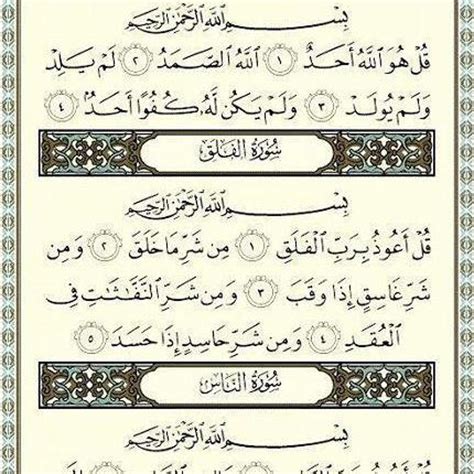 بِسْمِ اللَّهِ الرَّحْمَٰنِ الرَّحِيمِ
قُلْ هُوَ اللَّهُ أَحَدٌ ١ اللَّهُ الصَّمَدُ ٢ لَمْ يَلِدْ
وَلَمْ يُولَدْ ٣ وَلَمْ يَكُن لَّهُ كُفُوًا أَحَدٌ ٤
سُورَةُ الْفَلَقِ
بِسْمِ اللَّهِ الرَّحْمَٰنِ الرَّحِيمِ
قُلْ أَعُوذُ بِرَبِّ الْفَلَقِ ١ مِن شَرِّ مَا خَلَقَ ٢ وَمِن
شَرِّ غَاسِقٍ إِذَا وَقَبَ ٣ وَمِن شَرِّ النَّفَّاثَاتِ فِي
الْعُقَدِ ٤ وَمِن شَرِّ حَاسِدٍ إِذَا حَسَدَ ٥
سُورَةُ النَّاسِ
بِسْمِ اللَّهِ الرَّحْمَٰنِ الرَّحِيمِ